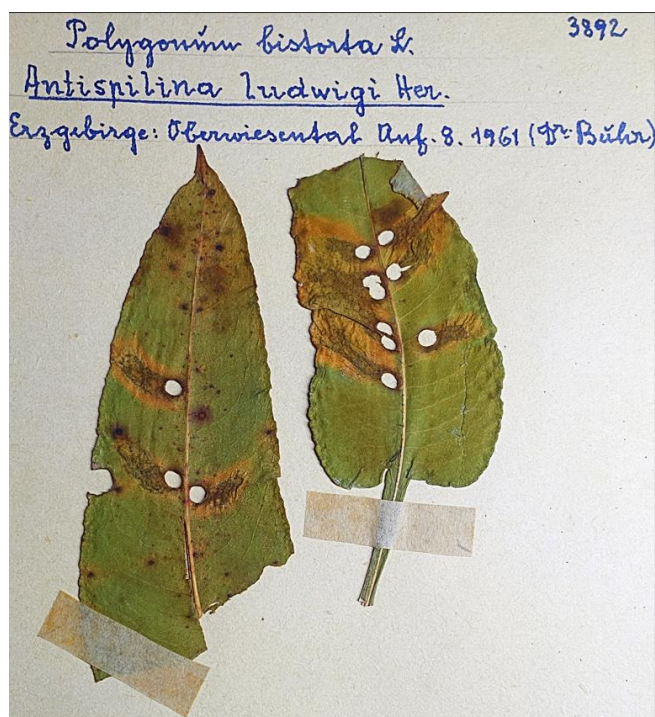 3892
Polygonum bistorta L.
Antispilina Ludwigi Her.
Erzgebirge: Oberwiesental Anf. 8. 1961 (Dr. Buhr)